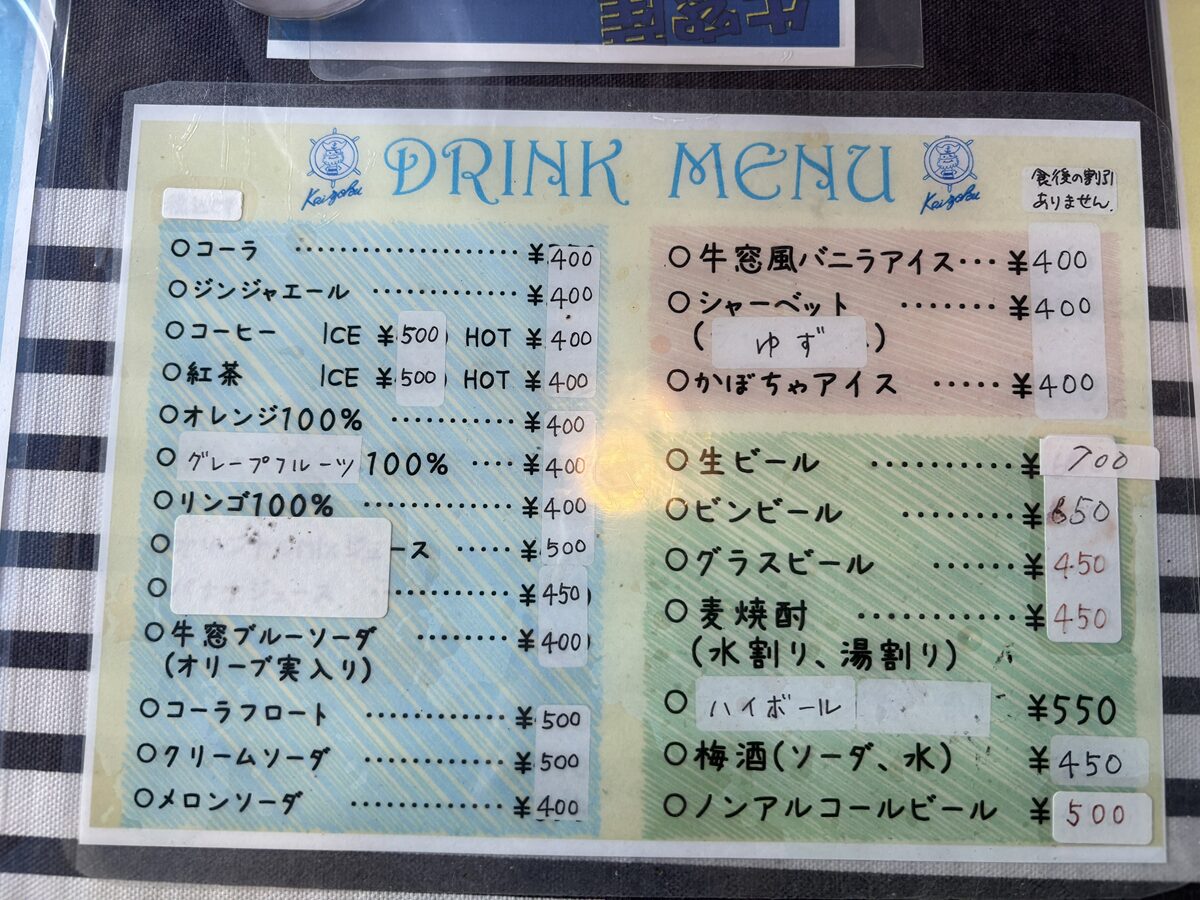 牛窓産
DRINK MENU
Kaizoku
Kaizoku
食後の割引
ありません。
○コーラ ¥400
○ジンジャエール ¥400
○コーヒー ICE ¥500 HOT ¥400
○紅茶 ICE ¥500 HOT ¥400
○オレンジ100% ¥400
○グレープフルーツ100% ¥400
○リンゴ100% ¥400
○ ース ¥500
○ ¥450
○牛窓ブルーソーダ ¥400
(オリーブ実入り)
○コーラフロート ¥500
○クリームソーダ ¥500
○メロンソーダ ¥400
○牛窓風バニラアイス… ¥400
○シャーベット ¥400
(ゆず)
○かぼちゃアイス ¥400
○生ビール ¥700
○ビンビール ¥650
○グラスビール ¥450
○麦焼酎 ¥450
(水割り、湯割り)
○ハイボール ¥550
○梅酒(ソーダ、水) ¥450
○ノンアルコールビール ¥500